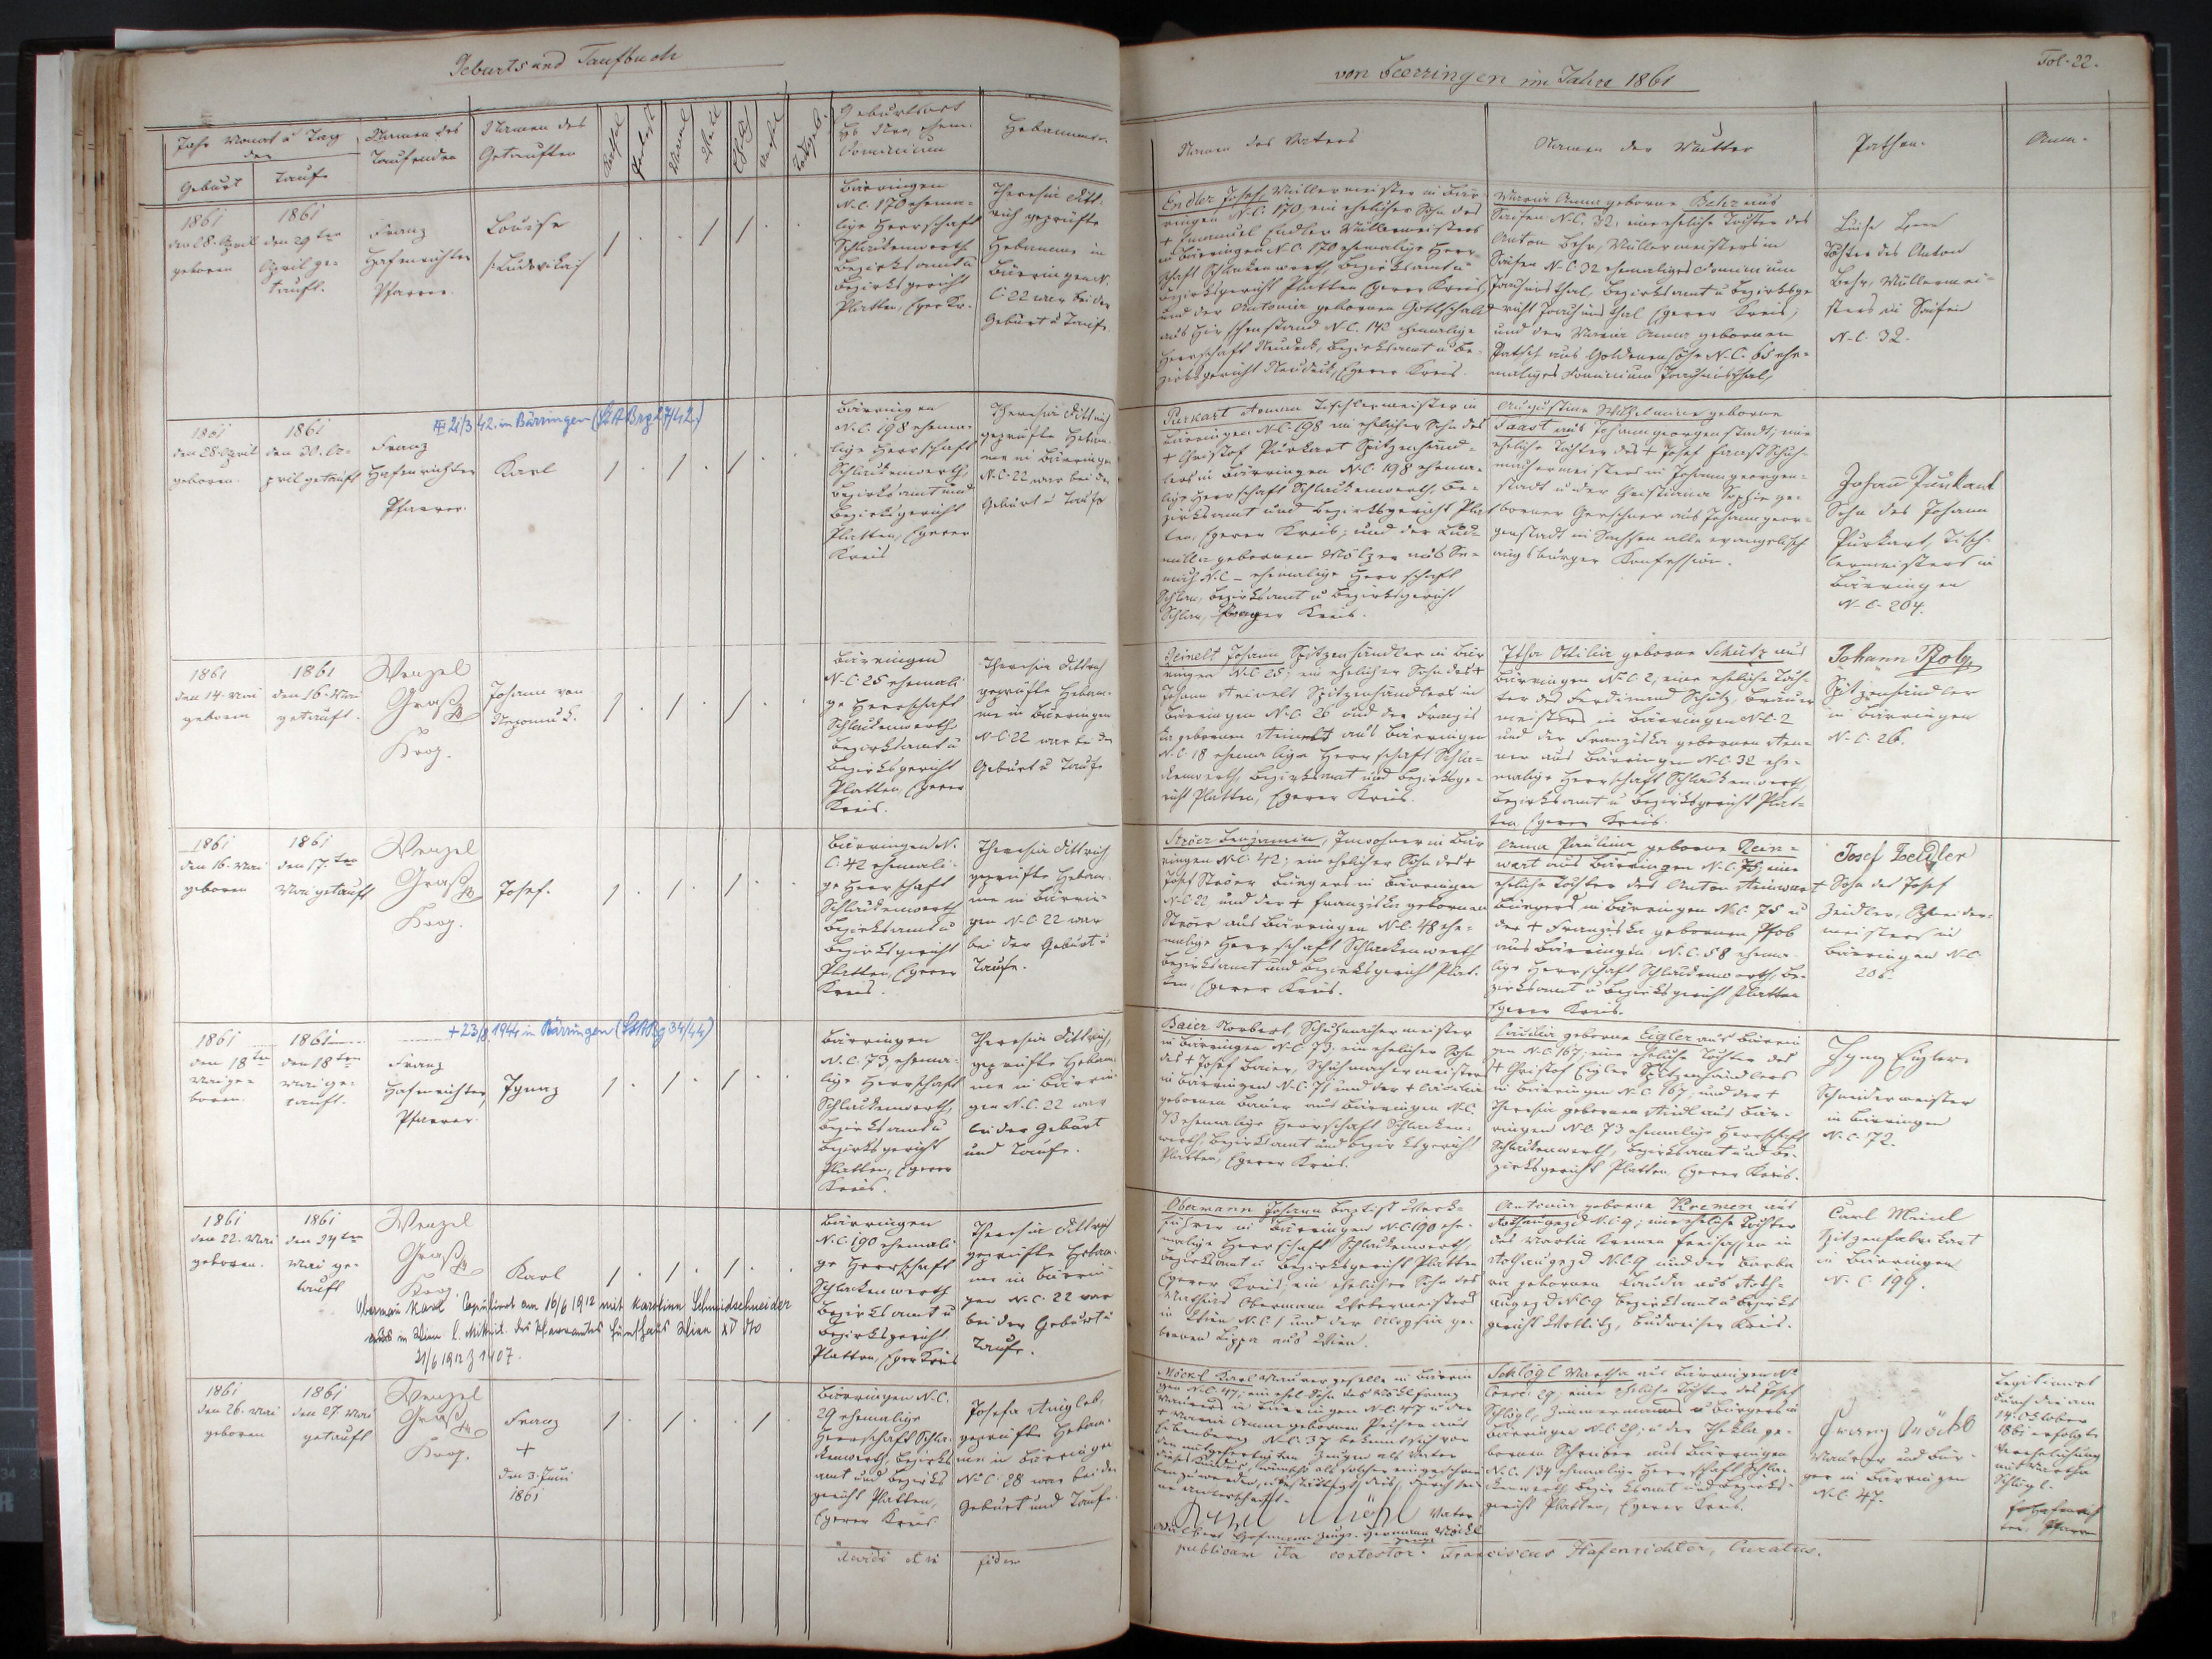 Geburts und Taufbuch
von Baerringen im Jahre 1861
Fol. 22.
Jahr Monat u Tag
der
Geburt
Taufe
Namen des
Taufenden
Namen des
Getauften
Geburtsort
Dominium
Hebamme
Namen des Vaters
Namen der Mutter
Pathen.
Anm.
1861
den 28. April
geboren
1861
den 29ten
April ge-
tauft.
Franz
Hafenrichter
Pfarrer.
Louise
Ludovika
Bärringen
N.C. 170 ehema-
lige Herrschaft
Schlackenwerth
Bezirksamt u
Bezirksgericht
Platten, Eger Kr.
Theresia Ditt-
rich geprüfte
Hebamme in
Bärringen N.
C. 22 war bei der
Geburt u Taufe
Endler Josef, Müllermeister in Bär-
ringen N.C. 170, ein ehelicher Sohn des
+ Emanuel Endler Müllermeisters
in Bärringen N.C. 170 ehemalige Herr-
schaft Schlackenwerth, Bezirksamt u
Bezirksgericht Platten Egerer Kreis,
und der Antonia gebornen Gottschald
aus Hirschenstand N.C. 142 ehemalige
Herrschaft Neudeck, Bezirksamt u Be-
zirksgericht Neudeck, Egerer Kreis
Maria Anna geborne Behr aus
Seifen N.C. 32, eine eheliche Tochter des
Anton Behr, Müllermeisters in
Seifen N.C. 32 ehemaliges Dominium
Joachimsthal, Bezirksamt u Bezirksge-
richt Joachimsthal Egerer Kreis,
und der Maria Anna gebornen
aus Goldenenhöhe N.C. 65 ehe-
maliges Dominium Joachimsthal,
Tochter des Anton
Behr, Müllermei-
sters in Seifen
N.C. 32.
21/3 42. in Bärringen (StA Brg 27/42.)
1861
den 28. April
geboren.
1861
den 30. A-
pril getauft
Franz
Hafenrichter
Pfarrer.
Karl
Bärringen
N.C. 198 ehema-
lige Herrschaft
Schlackenwerth,
Bezirksamt und
Bezirksgericht
Platten, Egerer
Kreis
Theresia Dittrich
geprüfte Hebam-
me in Bärringen
N.C. 22 war bei der
Geburt u Taufe
Purkart Roman Tischlermeister in
Bärringen N.C. 198 ein ehelicher Sohn des
+ Christof Purkart Spitzenhänd-
lers in Bärringen N.C. 198 ehema-
lige Herrschaft Schlackenwerth, Be-
zirksamt und Bezirksgericht Plat-
ten, Egerer Kreis, und der Lud-
milla gebornen
N.C. – ehemalige Herrschaft
Schlan, Bezirksamt u Bezirksgericht
Schlan, Prager Kreis.
Augustine Wilhelmine geborne
Faast aus Johanngeorgenstadt, eine
eheliche Tochter des + Josef Faast Schuh-
machermeisters in Johanngeorgen-
stadt u der Christiana Sophie ge-
bornen Gerschner aus Johanngeor-
genstadt in Sachsen alle evangelisch
augsburger Konfession.
Johann Purkart
Sohn des Johann
Purkart, Tisch-
lermeisters in
Bärringen
N.C. 204.
1861
den 14. Mai
geboren
1861
den 16. Mai
getauft.
Wenzel
Graß
Koop.
Johann von
Nepomuk.
Bärringen
N.C. 25 ehemali-
ge Herrschaft
Schlackenwerth
Bezirksamt u
Bezirksgericht
Platten, Egerer
Kreis.
Theresia Dittrich
geprüfte Hebam-
me in Bärringen
N.C. 22 war bei der
Geburt u Taufe
Reinelt Johann Spitzenhändler in Bär-
ringen N.C. 25; ein ehelicher Sohn des +
Johann Reinelt Spitzenhändlers in
Bärringen N.C. 26 und der Franzis-
ka gebornen Reinelt aus Bärringen
N.C. 18 ehemalige Herrschaft Schla-
ckenwerth, Bezirksamt und Bezirksge-
richt Platten, Egerer Kreis.
Ottilia geborne Schütz aus
Bärringen N.C. 2, eine eheliche Toch-
ter des Ferdinand Schütz, Bräuer-
meisters in Bärringen N.C. 2
und der Franziska gebornen
aus Bärringen N.C. 32 ehe-
malige Herrschaft Schlackenwerth,
Bezirksamt u Bezirksgericht Plat-
ten Egerer Kreis.
Johann
Spitzenhändler
in Bärringen
N.C. 26.
1861
den 16. Mai
geboren
1861
den 17.ten
Mai getauft
Wenzel
Graß
Koop.
Josef.
Bärringen N.
C. 42 ehemali-
ge Herrschaft
Schlackenwerth
Bezirksamt u
Bezirksgericht
Platten, Egerer
Kreis.
Theresia Dittrich
geprüfte Hebam-
me in Bärrin-
gen N.C. 22 war
bei der Geburt u
Taufe.
Ströer Benjamin, Inwohner in Bär-
ringen N.C. 42; ein ehelicher Sohn des +
Josef Ströer Bürgers in Bärringen
N.C. 22, und der + Franziska gebornen
Ströer aus Bärringen N.C. 48 ehe-
malige Herrschaft Schlackenwerth
Bezirksamt und Bezirksgericht Plat-
ten, Egerer Kreis.
Anna Paulina geborne Rein-
wart aus Bärringen N.C. 75, eine
eheliche Tochter des Anton Reinwart
Bürgers in Bärringen N.C. 75 u
der + Franziska gebornen
aus Bärringen N.C. 58 ehema-
lige Herrschaft Schlackenwerth, Be-
zirksamt u Bezirksgericht Platten
Egerer Kreis.
Josef Zeidler
+ Sohn des Josef
Zeidler, Schneider-
meisters in
Bärringen N.C.
206.
+ 23/8 1944 in Bärringen (StABrg 34/44)
1861
den 18ten
Mai ge-
boren.
1861
den 18ten
Mai ge-
tauft.
Franz
Hafenrichter,
Pfarrer.
Ignaz
Bärringen
N.C. 73, ehema-
lige Herrschaft
Schlackenwerth,
Bezirksamt u
Bezirksgericht
Platten, Egerer
Kreis.
Theresia Dittrich,
geprüfte Hebam-
me in Bärrin-
gen N.C. 22 war
bei der Geburt
und Taufe.
Baier Norbert, Schuhmachermeister
in Bärringen N.C. 73. ein ehelicher Sohn
des + Josef Baier, Schuhmachermeisters
in Bärringen N.C. 71 und der +
gebornen Bauer aus Bärringen N.C.
73 ehemalige Herrschaft Schlacken-
werth, Bezirksamt und Bezirksgericht
Platten, Egerer Kreis.
Cäcilia geborne Eigler aus Bärrin-
gen N.C. 167, eine eheliche Tochter des
+ Christof Eigler Spitzenhändlers
in Bärringen N.C. 167, und der +
Theresia gebornen aus Bär-
ringen N.C. 73 ehemalige Herrschaft
Schlackenwerth, Bezirksamt und Be-
zirksgericht Platten, Egerer Kreis.
Ignaz Eigler
Schneidermeister
in Bärringen
N.C. 72.
1861
den 22. Mai
geboren.
1861
den 24ten
Mai ge-
tauft
Wenzel
Graß
Koop.
Karl
Obermann Karl Copulirt am 16/6 1912 mit Karolina Schmidschneider
in Wien l. Mitteil. des Pfarramtes Fünfhaus Wien XV dto
21/6 1912 Z 1407.
Bärringen
N.C. 190 ehemali-
ge Herrschaft
Schlackenwerth
Bezirksamt u
Bezirksgericht
Platten, Eger Kreis
Theresia Dittrich
geprüfte Hebam-
me in Bärrin-
gen N.C. 22 war
bei der Geburt u
Taufe.
Obermann Johann Baptist Werk-
führer in Bärringen N.C. 190 ehe-
malige Herrschaft Schlackenwerth,
Bezirksamt u Bezirksgericht Platten
Egerer Kreis, ein ehelicher Sohn des
Mathias Obermann Webermeisters
in Wien N.C. 1 und der Aloysia ge-
bornen Lippa aus Wien.
Antonia geborne Kremen aus
Rothaugezd N.C. 9; eine eheliche Tochter
des Martin Kremen Freisassen in
Rothaugezd N.C. 9 und der Barba-
ra gebornen Lauda aus Roth-
augezd N.C. 9 Bezirksamt u Bezirks-
gericht Wottitz, Budweiser Kreis.
Carl Meinl
Spitzenfabrikant
in Bärringen
N.C. 199.
1861
den 26. Mai
geboren
1861
den 27. Mai
getauft
Wenzel
Graß
Koop.
Franz
+
den 3. Juni
1861
Bärringen N.C.
29 ehemalige
Herrschaft Schla-
ckenwerth, Bezirks-
amt und Bezirks-
gericht Platten,
Egerer Kreis
Josefa
geprüfte Hebam-
me in Bärringen
N.C. 28 war bei der
Geburt und Taufe.
Möckl Karl Maurergeselle in Bärrin-
gen N.C. 47; ein ehel. Sohn des Möckl Franz
Maurers in Bärringen N.C. 47 u der
+ Maria Anna gebornen aus
Eibenberg N.C. 37 bekennt sich vor
den mitgefertigten Zeugen als Vater
dieses Kindes, wünscht als solcher eingeschrie-
ben zu werden, u bestättigt dies durch sei-
ne Unterschrift.
Karl Möckl Vater
Adalbert Hofmann Zeuge. Hermann Möckl
Zeuge
Schlögl Martha aus Bärringen N.
Conc. 29; eine eheliche Tochter des Josef
Schlögl, Zimmermanns u Bürgers in
Bärringen N.C. 29; u der Thekla ge-
bornen Schreiber aus Bärringen
N.C. 134 ehemalige Herrschaft Schla-
ckenwerth, Bezirksamt und Bezirks-
gericht Platten, Egerer Kreis.
Franz Möckl
Maurer und Bür-
ger in Bärringen
N.C. 47.
Legitimirt
durch die am
14. Oktober
1861 erfolgte
Verehelichung
mit Martha
Schlögl.
Hafenrich-
ter, Pfarrer
Revidi et in fidem
publicam ita contestor. Franciscus Hafenrichter, Curatus.